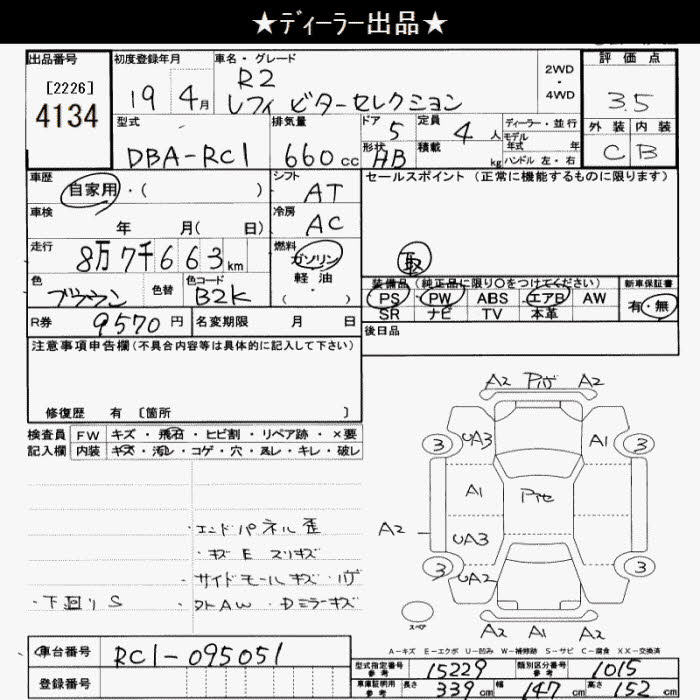 ★ディーラー出品★
出品番号
[2226]
4134
初度登録年月
19 4月
車名・グレード
R2
レフィ ビターセレクション
2WD
・
4WD
評価点
3.5
外装 内装
C B
型式
DBA-RC1
排気量
660cc
ドア 5
形状 HB
定員 4人
積載 kg
ディーラー・並行
モデル
年式 年
ハンドル 左・右
車歴
自家用・( )
シフト
AT
セールスポイント (正常に機能するものに限ります)
車検
年 月( 日)
冷房
AC
走行
8万7千663km
燃料
ガソリン
軽油
( )
取
色
ブラウン
色替
色コード
B2K
装備品 (純正品に限り○をつけてください)
PS PW ABS エアB AW
SR ナビ TV 本革
新車保証書
有・無
R券
9570円
名変期限 月 日
後日品
注意事項申告欄(不具合内容等は具体的に記入して下さい)
修復歴 有 〔箇所 〕
検査員
記入欄
FW キズ・飛石・ヒビ割・リペア跡・×要
内装 キズ・汚レ・コゲ・穴・スレ・キレ・破レ
・エンドパネル歪
・キズE スリキズ
・サイドモールキズ・ハゲ
・下回りS
・外AW・Dミラーキズ
A2 A2
3 UA3 A1 3
A1
A2
UA3
3 UA2 3
スペア
A2 A1 A2
A-キズ E-エクボ U-凹み W-補修跡 S-サビ C-腐食 XX-交換済
車台番号
RC1-095051
登録番号
型式指定番号
参考
15229
類別区分番号
参考
1015
車庫証明用
参考
長さ 339cm
幅 147cm
高さ 152cm